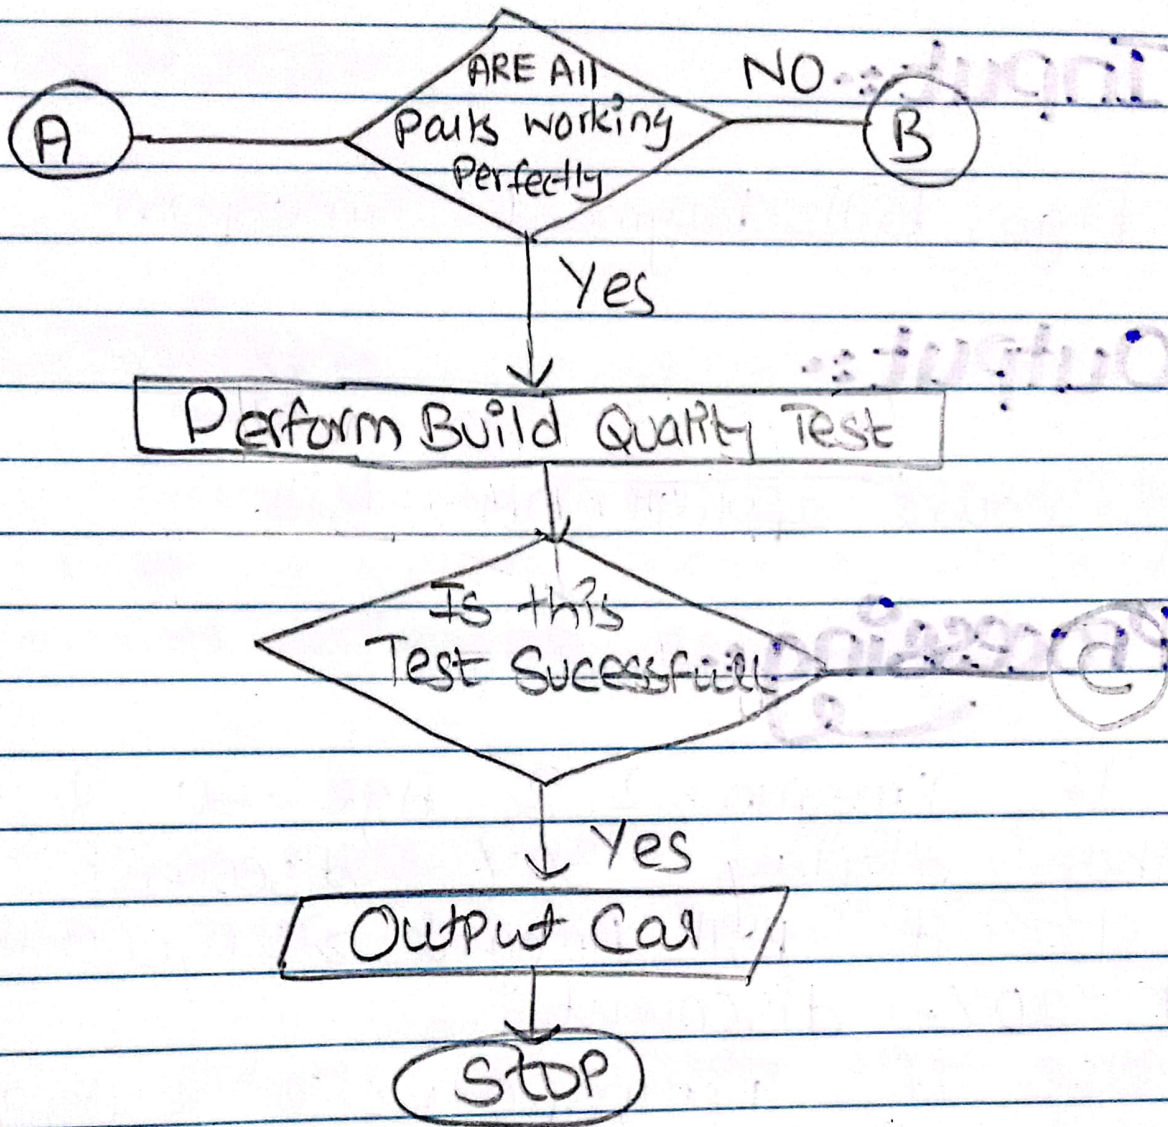 ARE All
NO
A
Parts working
B
Perfectly
Yes
Perform Build Quality Test
Is this
Test Sucessfull
C
Yes
Output Car
Stop